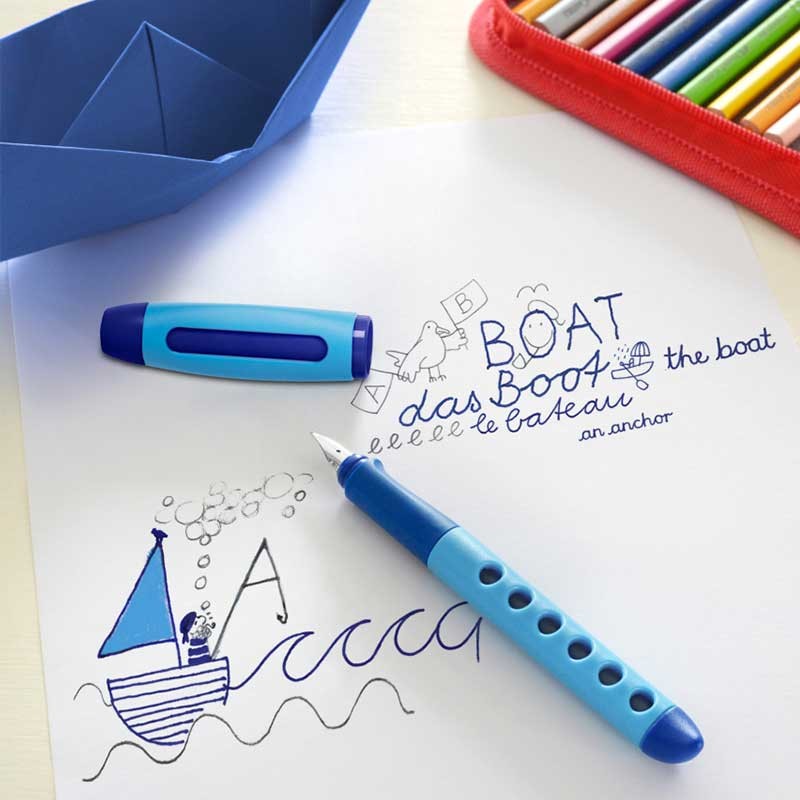 B
A
BOAT
das Boot
the boat
e e e e e le bateau
an anchor
A